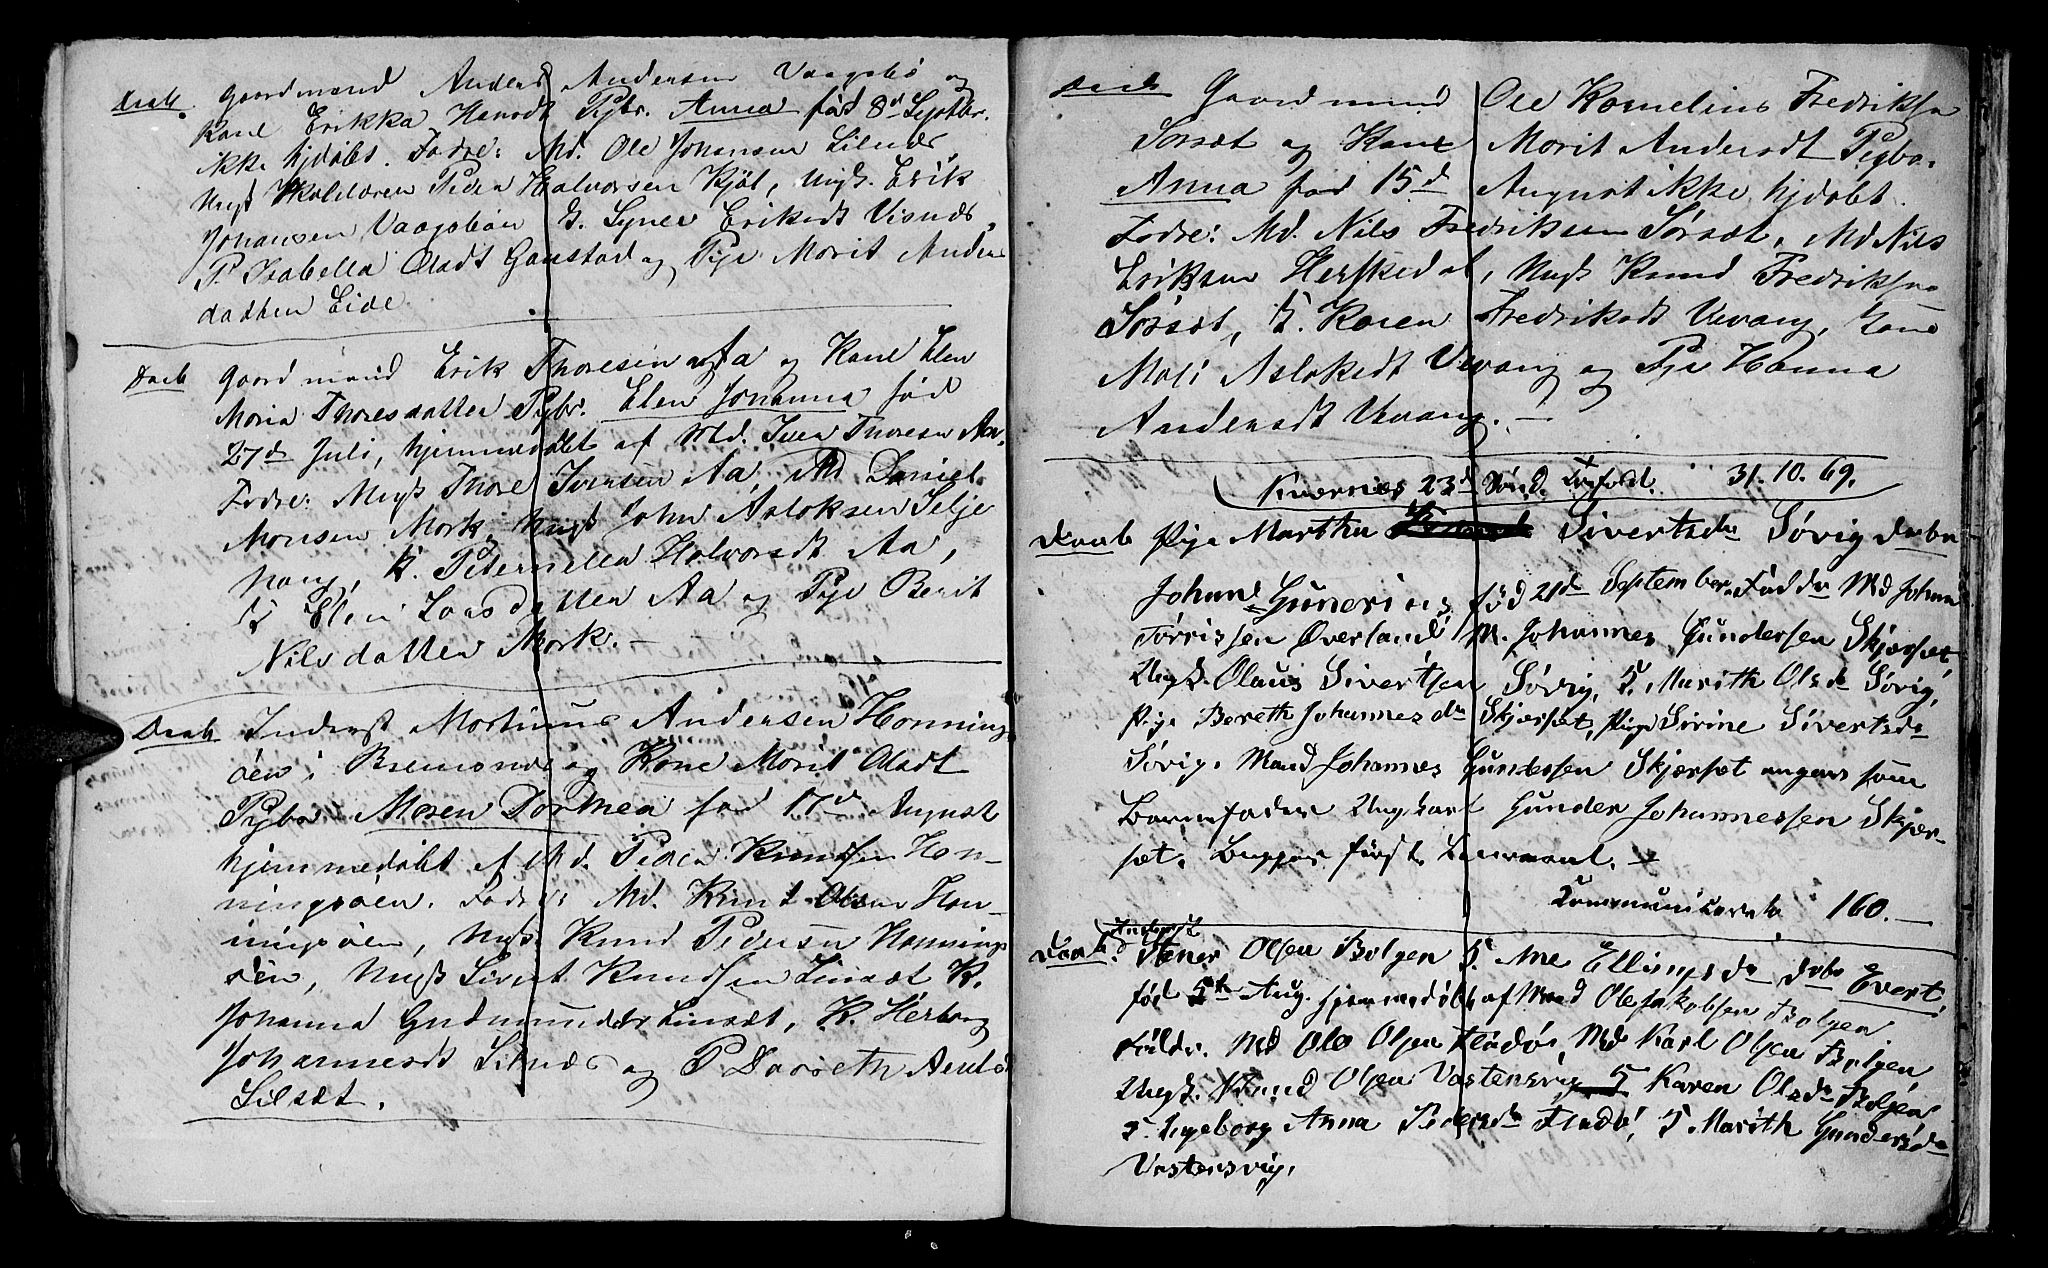 Daab Gaardmand Anders Andersen Vaagsbø og
Kone Erikka Hansdt Pigbr. Anna fød 8d Septbr.
ikke hjdøbt. Fadre: Md. Ole Johansen Lilnæs,
Ungk Skolelæren Peder Halvorsen Kjøl, Ungk. Erik
Johansen Vaagsbøn K. Synev Eriksdt Visnæs,
P. Isabella Olsdt Gaustad og Pige Marit Anders
datten Eide.
Daab Gaardmand Erik Thoresen Aa og Kone Elen
Maria Thoresdatter Pigbr. Elen Johanna fød
27de Juli, hjemmedøbt af Md. Iver Thoresen Aa.
Fadre: Ungk Thore Iversen Aa, Md Daniel
Monsen Mork, Ungk John Aslaksen Selje
haug, K. Pedernella Halvorsdt Aa,
K Elen Larsdatter Aa og Pige Berit
Nilsdatter Mork. —
Daab Inderst Martinus Andersen Honnings
øen i Bremsnæs og Kone Marit Olsdt
Pigbr Maren Dorthea fød 17de August
hjemmedøbt af Md. Peder Knudsen Hon-
ningsøen. Fadre: Md. Knut Olsen Hon-
ningsøen, Ungk. Knud Pedersen Honnings
øen, Ungk Sivert Knudsen Linsæt K.
Johanna Gudmundsdt Linsæt, K. Herborg
Johannesdt Lilnæs og P Dorseth Amds
Lilsæt.
Daab Gaardmand Ole Kornelius Fredriksen
Sørsæt og Kone Marit Andersdt Pigbr.
Anna fød 15d August ikke hjdøbt.
Fadre: Md. Nils Fredriksen Sørsæt, Md Nils
Eriksen Herskedal, Ungk Knud Fredriksen
Sørsæt, K. Karen Fredriksdt Vevang, Kone
Mali Aslaksdt Vevang og Pige Hanna
Andersdt Vevang. —
Kvernæs 23d Sønd. Trefold. 31.10.69.
Daab Pige Martha Sivertsda Søvig dabn
Johan Gunerius fød 21de September. Faddr Md Johan
Tørrissen Øverland, M. Johannes Gundersen Skjærsæt,
Ungk. Olaus Sivertsen Søvig, K. Marith Olsda Søvig,
Pige Bereth Johannesda Skjærsæt, Pige Sirine Sivertsda
Søvig. Mand Johannes Gundersen Skjærsæt angav som
Barnefader Ungkarl Gunder Johannessen Skjær-
sæt. Begges første Leiermaal. —
Communicerede 160. —
Inderst
Daab. Stener Olsen Bolgen K. Ane Ellingsda dabn Evert
fød 5te Aug. hjemmedøbt af Mand Ole Jakobsen Bolgen
Faddr. Md Ole Olsen Fladsø, Md Karl Olsen Bolgen
Ungk. Knud Olsen Vastensvig K Karen Olsda Bolgen
K. Ingeborg Anna Pedersda Fladsø, K Marith Gundersda
Vastensvig.